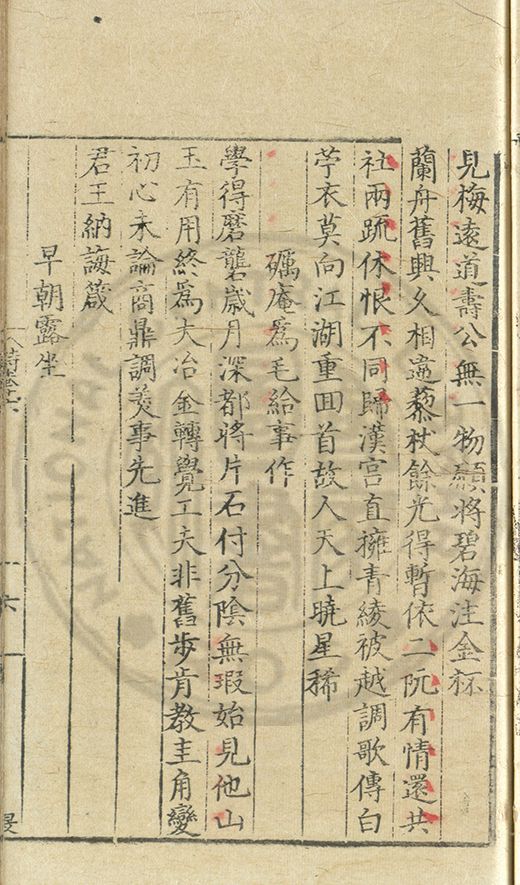 見梅遠道壽公無一物願將碧海注金杯
蘭舟舊興久相違藜杖餘光得暫依二阮有情還共
社兩疏休恨不同歸漢宫直擁青綾被越調歌傳白
苧衣莫向江湖重囬首故人天上曉星稀
礪庵爲毛給事作
學得磨礲歲月深都將片石付分陰無瑕始見他山
玉有用終爲大冶金轉覺工夫非舊歩肯教圭角變
初心未論商鼎調羮事先進
君王納誨箴
早朝露坐
十六